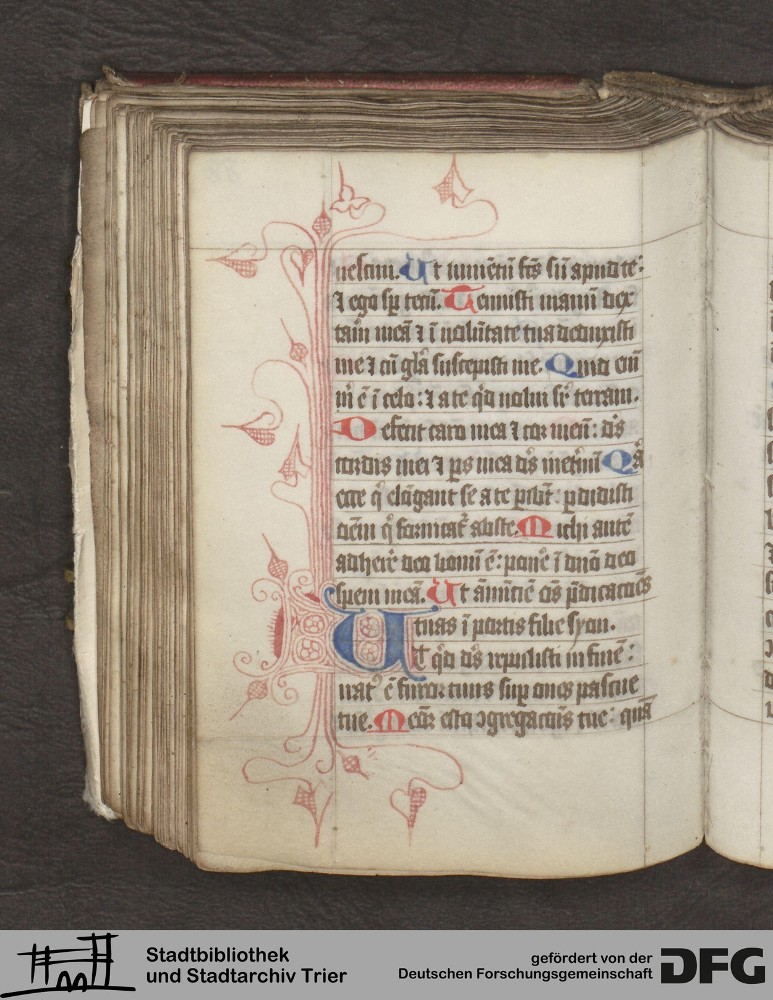 nesciui. Ut iumētū fc̄s sū apud te:
⁊ ego sp̄ tecū. Tenuisti manū dex
tam̄ meā ⁊ ī uolūtate tua deduxisti
me ⁊ cū gl̄a suscepisti me. Quid eni̅
m̄ ē ī celo: ⁊ a te qͥd uolui sr̄ terram.
Defecit caro mea ⁊ cor meū: ds̄
cordis mei ⁊ ps̄ mea ds̄ inet̄nū Qͣ
ecce qͥ elōgant se a te ꝑibūt: ꝑdidisti
oēm qͥ fornicat᷑ abste. Michi autē
adhere᷑ deo bonū ē: pone᷑ ī dn̄o deo
spem meā. Ut ānūtiē oēs p̄dicatiōēs
tuas ī portis filie syon.
Ut qͥd ds̄ repulisti in finē:
irat᷒ ē furor tuus suꝑ oues pascue
tue. Memōr esto ↄgregatiōis tue: quā
Stadtbibliothek
und Stadtarchiv Trier
gefördert von der
Deutschen Forschungsgemeinschaft
DFG